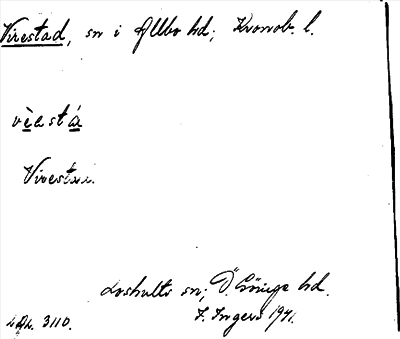 Virestad, sn i Allbo hd; Kronob. l.
vi̱e̱stá̱
Virestad.
Loshults sn; Ö. Göinge hd.
LAL. 3110.
F. Ingers 1941.